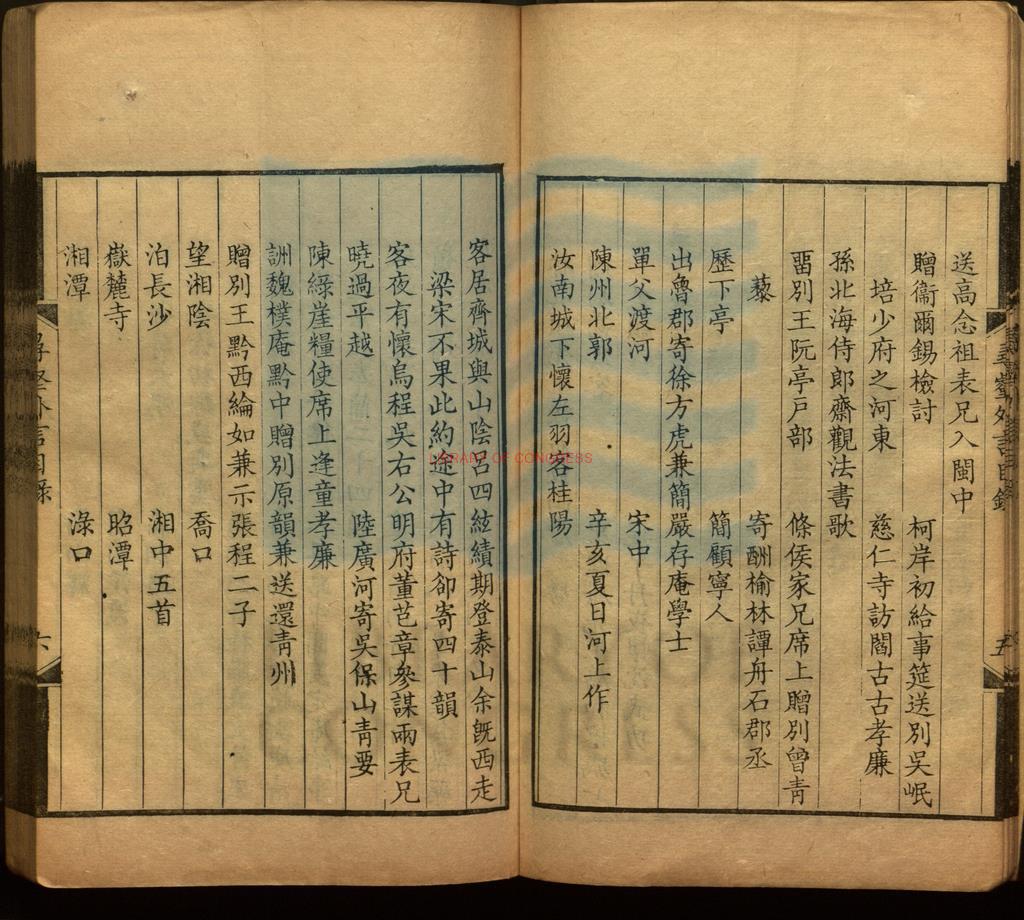 送高念祖表兄入閩中
贈衞爾錫檢討 柯岸初給事筵送別吳岷
培少府之河東 慈仁寺訪閻古古孝廉
孫北海侍郎齋觀法書歌
畱別王阮亭戶部 條侯家兄席上贈別曾青
藜 寄酬榆林譚舟石郡丞
歷下亭 簡顧寧人
出魯郡寄徐方虎兼簡嚴存庵學士
單父渡河 宋中
陳州北郭 辛亥夏日河上作
汝南城下懷左羽客桂陽
五
客居齊城與山陰呂四絃績期登泰山余旣西走
梁宋不果此約途中有詩卻寄四十韻
客夜有懷烏程吳右公明府董芑章參謀兩表兄
曉過平越 陸廣河寄吳保山青要
陳綠崖糧使席上逢童孝廉
詶魏樸庵黔中贈別原韻兼送還青州
贈別王黔西綸如兼示張程二子
望湘陰 喬口
泊長沙 湘中五首
嶽麓寺 昭潭
湘潭 淥口
六
LIBRARY OF CONGRESS